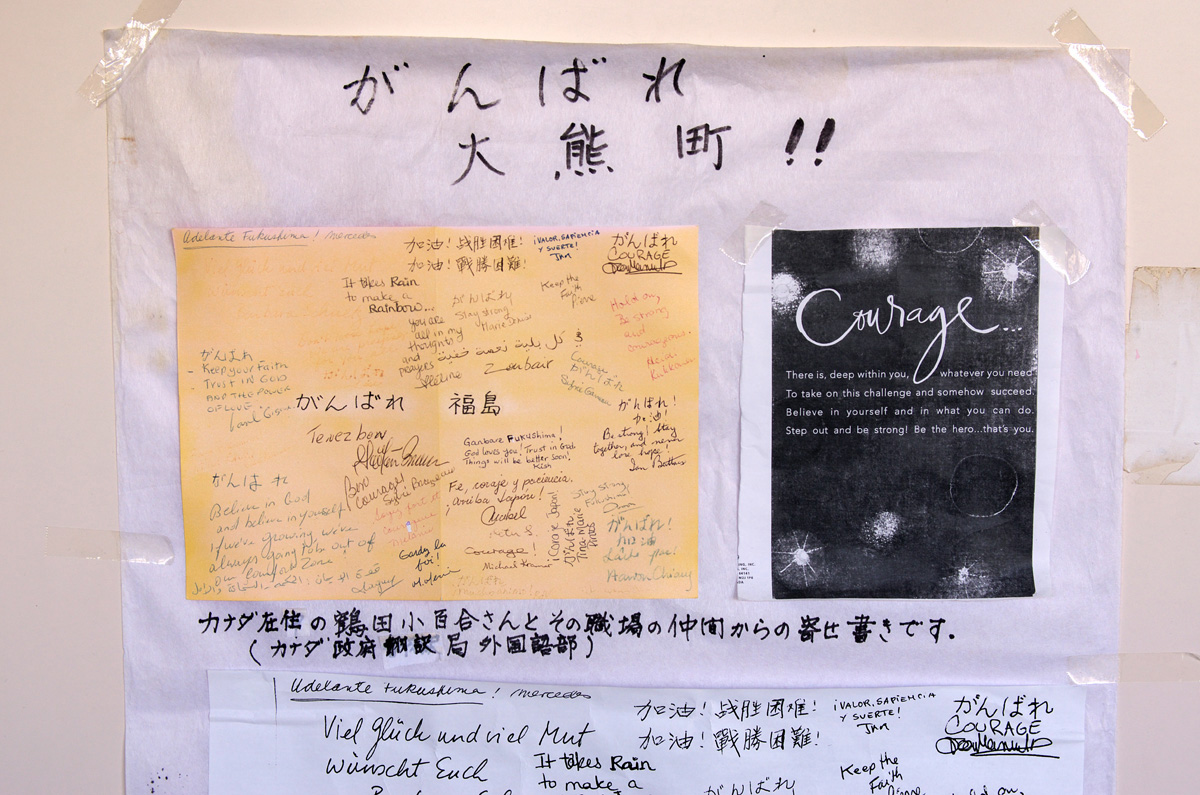 がんばれ
大熊町!!
Adelante Fukushima! Mercedes
加油!战胜困难!
加油!戰勝困難!
¡VALOR, SAPIENCIA
Y SUERTE!
がんばれ
COURAGE
It takes Rain
to make a
RAINBOW...
you are
all in my
thoughts
and
prayers
がんばれ
Stay strong
Keep the
Faith
Hold on,
Be strong
and
がんばれ
Keep your Faith
Trust in GOD
AND THE POWER
OF LOVE
Zubair
がんばれ
がんばれ 福島
Tenez bon
Bon
courage!
Ganbare FUKUSHIMA!
God loves you! Trust in God
Things will be better soon!
Kish
がんばれ!
加油!
Be strong! Stay
together, and never
lose hope!
がんばれ
Believe in God
and believe in yourself
If we're growing, we're
always going to be out of
our comfort zone
Fe, coraje y paciencia.
¡Arriba Japón!
Courage!
Michael Kramer
¡Coraje Japon!
がんばれ
Tina-Marie
Stay strong,
がんばれ!
加油
Gardez la
foi!
Courage...
There is, deep within you, whatever you need
To take on this challenge and somehow succeed.
Believe in yourself and in what you can do.
Step out and be strong! Be the hero...that's you.
カナダ在住の鶴田小百合さんとその職場の仲間からの寄せ書きです。
(カナダ政府翻訳局外国語部)
Adelante Fukushima! Mercedes
加油!战胜困难!
加油!戰勝困難!
¡VALOR, SAPIENCIA
Y SUERTE!
がんばれ
COURAGE
Viel Glück und viel Mut
wünscht Euch
It takes Rain
to make a
Keep the
Faith
がんばれ
Hold on,